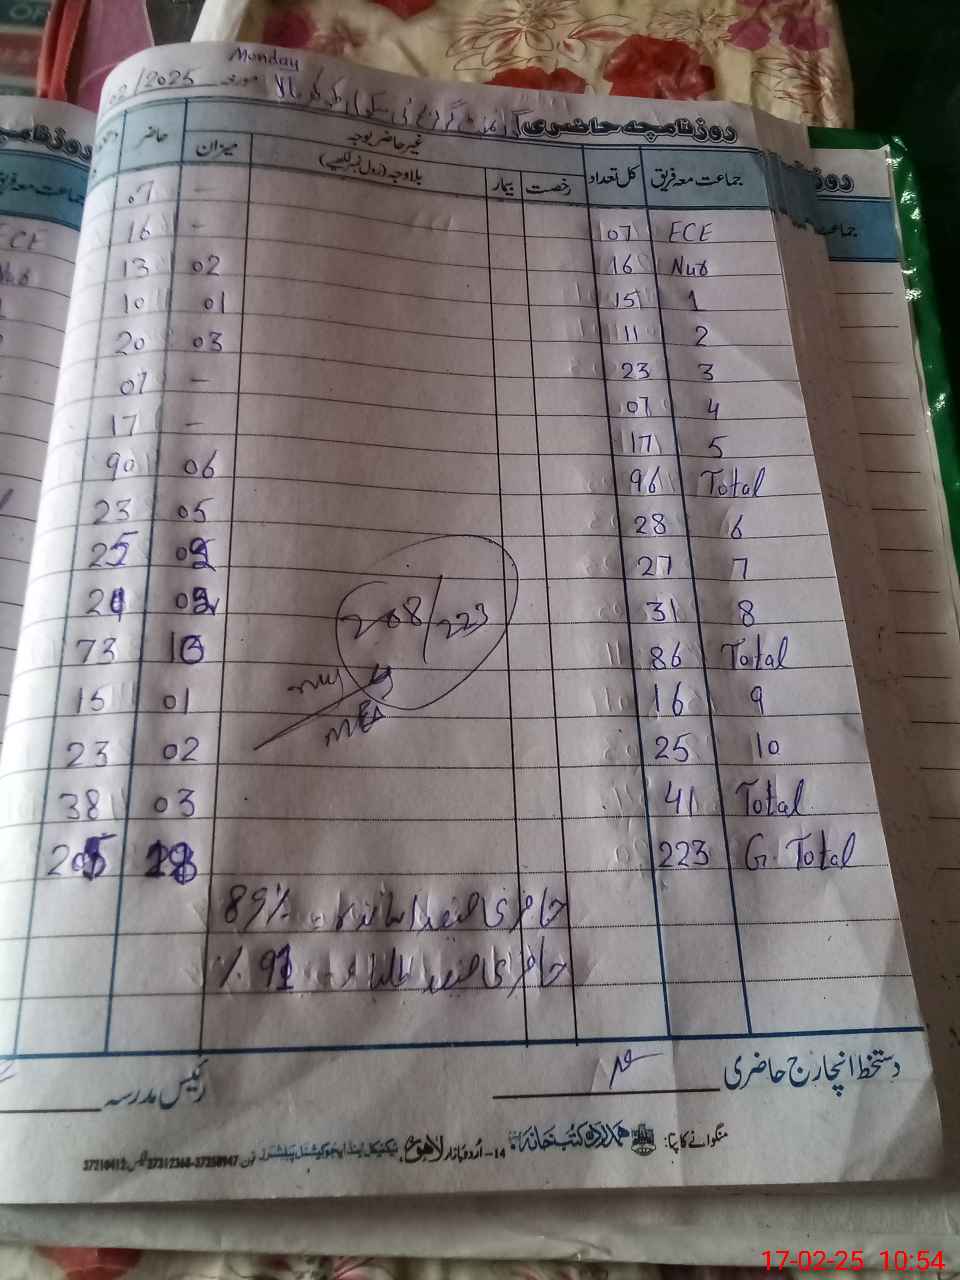 Monday
02/2025 مورخہ
روزنامچہ حاضری گورنمنٹ گرلز ہائی سکول
جماعت معہ فریق کل تعداد رخصت بیمار غیر حاضر بوجہ بلاوجہ (رول نمبر لکھیے) میزان حاضر
ECE 07 – 07
Nur 16 – 16
1 15 02 13
2 11 01 10
3 23 03 20
4 07 – 07
5 17 – 17
Total 96 06 90
6 28 05 23
7 27 02 25
8 31
Total 86 13 73
9 16 01 15
10 25 02 23
Total 41 03 38
G. Total 223
208/223
MEA
حاضری فیصد اساتذہ 89%
حاضری فیصد طلباء 91%
دستخط انچارج حاضری رئیس مدرسہ
منگوانے کا پتا: ہمدرد کتب خانہ 14-اُردو بازار لاہور ٹیکنیکل اینڈ ایجوکیشنل پبلشرز فون: 37312368-37258947 فیکس: 37210412
17-02-25 10:54